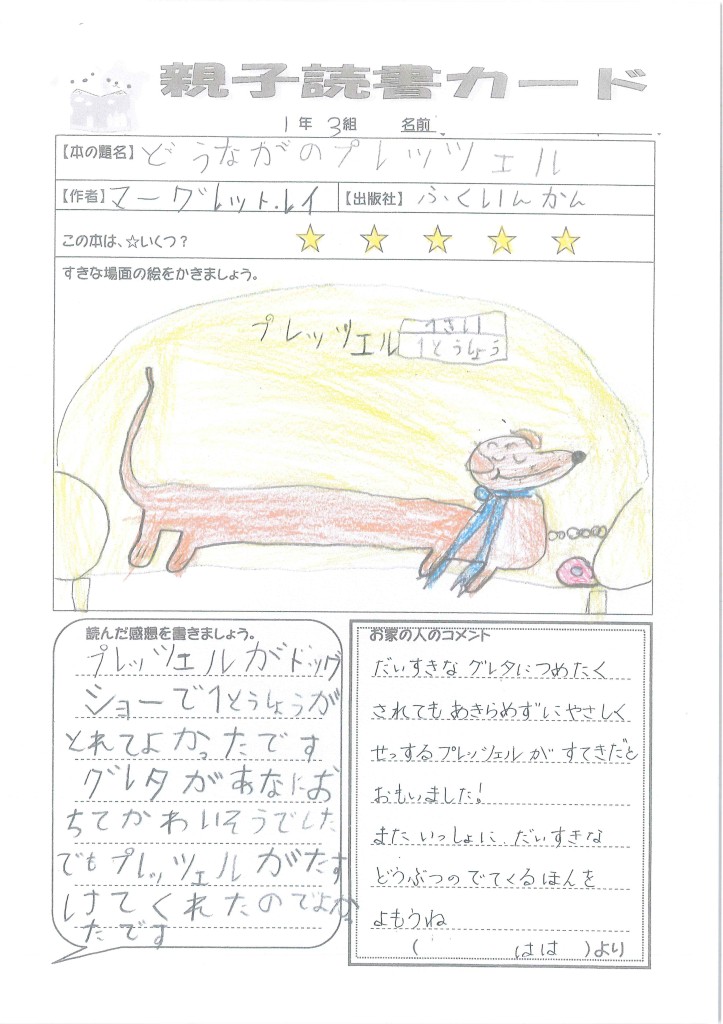 親子読書カード
1年 3組 名前
【本の題名】どうながのプレッツェル
【作者】マーグレット.レイ 【出版社】ふくいんかん
この本は、☆いくつ？
すきな場面の絵をかきましょう。
プレッツェル
1さい
1とうしょう
読んだ感想を書きましょう。
プレッツェルがドッグ
ショーで1とうしょうが
とれてよかったです
グレタがあなにお
ちてかわいそうでした
でもプレッツェルがたす
けてくれたのでよかっ
たです
お家の人のコメント
だいすきなグレタにつめたく
されてもあきらめずにやさしく
せっするプレッツェルがすてきだと
おもいました!
またいっしょにだいすきな
どうぶつのでてくるほんを
よもうね
(はは)より